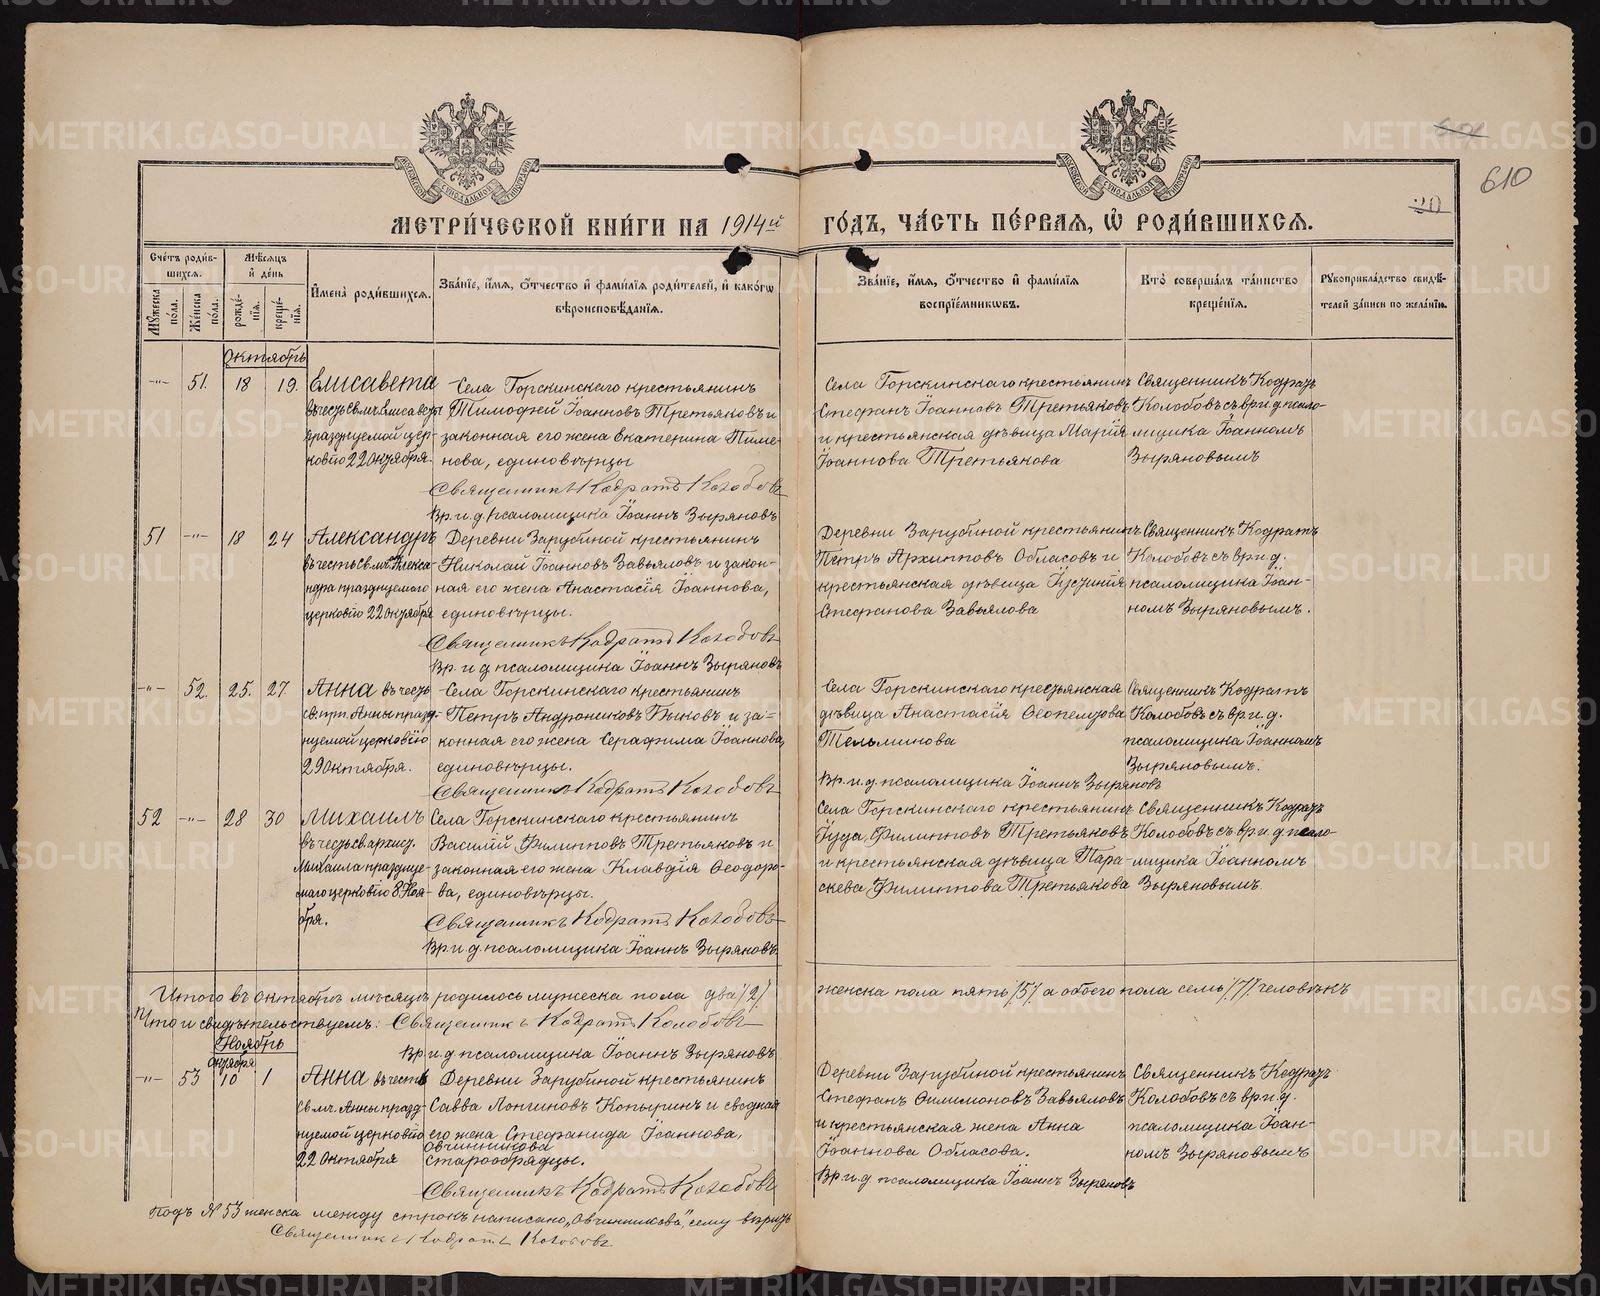 610
МЕТРИ́ЧЕСКОЙ КНИ́ГИ НА 1914й ГО́ДЪ, ЧА́СТЬ ПЕ́РВАЯ, Ѡ РОДИ́ВШИХСЯ.
Сче́тъ роди́в-
шихся.
Му́жеска по́ла.
Же́нска по́ла.
Мѣ́сяцъ
и де́нь
рожде́-
нїя.
креще́-
нїя.
Имена̀ роди́вшихся.
Зва́нїе, и́мя, о́тчество и фами́лїя роди́телей, и како́гѡ
вѣроисповѣ́данїя.
Зва́нїе, и́мя, о́тчество и фами́лїя
воспрїе́мниковъ.
Кто̀ соверша́лъ та́инство
креще́нїя.
Рукоприкла́дство свидѣ́-
телей за́писи по жела́нїю.
Октябрь
-"- 51. 18 19.
Елисавета
въ честь св. мч. Елисаветы
празднуемой цер-
ковію 22 Октября.
Села Горскинскаго крестьянинъ
Тимоѳей Іоанновъ Третьяковъ и
законная его жена Екатерина Пиме-
нова, единовѣрцы
Священникъ Кодратъ Колобовъ
Вр. и. д. псаломщика Іоаннъ Зыряновъ
Села Горскинскаго крестьянинъ
Стефанъ Іоанновъ Третьяковъ
и крестьянская дѣвица Марія
Іоаннова Третьякова
Священникъ Кодратъ
Колобовъ съ вр. и. д. псало-
мщика Іоанномъ
Зыряновымъ
51 -"- 18 24
Александръ
въ честь св. мч. Алекса-
ндра празднуемого
церковію 22 Октября
Деревни Зарубиной крестьянинъ
Николай Іоанновъ Завьяловъ и закон-
ная его жена Анастасія Іоаннова,
единовѣрцы.
Священникъ Кодратъ Колобовъ
Вр. и. д псаломщика Іоаннъ Зыряновъ
Деревни Зарубиной крестьянинъ
Петръ Архиповъ Обласовъ и
крестьянская дѣвица Іустинія
Стефанова Завьялова
Священникъ Кодратъ
Колобовъ съ вр. и. д.
псаломщика Іоан-
номъ Зыряновымъ.
-"- 52. 25. 27.
Анна въ честь
св. прп. Анны празд-
нуемой церковію
29 Октября.
Села Горскинскаго крестьянинъ
Петръ Андрониковъ Быковъ и за-
конная его жена Серафима Іоаннова,
единовѣрцы.
Священникъ Кодратъ Колобовъ
Села Горскинскаго крестьянская
дѣвица Анастасія Ѳеопемптова
Тельминова
Вр. и. д. псаломщика Іоаннъ Зыряновъ
Священникъ Кодратъ
Колобовъ съ вр. и. д.
псаломщика Іоанномъ
Зыряновымъ.
52 -"- 28 30
Михаилъ
въ честь св. архист.
Михаила празднуе-
маго церковію 8 Ноя-
бря.
Села Горскинскаго крестьянинъ
Василій Филипповъ Третьяковъ и
законная его жена Клавдія Ѳеодоро-
ва, единовѣрцы.
Священникъ Кодратъ Колобовъ
Вр. и. д. псаломщика Іоаннъ Зыряновъ.
Села Горскинскаго крестьянинъ
Іуда Филипповъ Третьяковъ
и крестьянская дѣвица Пара-
скева Филиппова Третьякова
Священникъ Кодратъ
Колобовъ съ вр. и. д. псало-
мщика Іоанномъ
Зыряновымъ.
Итого въ октябрѣ мѣсяцѣ родилось мужеска пола два /2/ женска пола пять /5/ а обоего пола семь /7/ человѣкъ
Что и свидѣтельствуемъ: Священникъ Кодратъ Колобовъ
Вр. и. д псаломщика Іоаннъ Зыряновъ
Ноябрь
Октября
-"- 53 10 1
Анна въ честь
св. мч. Анны празд-
нуемой церковію
22 Октября
Деревни Зарубиной крестьянинъ
Савва Лонгиновъ Копыринъ и сводная
его жена Стефанида Іоаннова,
Овчинникова
старообрядцы.
Священникъ Кодратъ Колобовъ
Деревни Зарубиной крестьянинъ
Стефанъ Филимоновъ Завьяловъ
и крестьянская жена Анна
Іоаннова Обласова.
Вр. и. д псаломщика Іоаннъ Зыряновъ
Священникъ Кодратъ
Колобовъ съ вр. и. д.
псаломщика Іоан-
номъ Зыряновымъ
Подъ № 53 женска между строкъ написано „Овчинникова", сему вѣрить
Священникъ Кодратъ Колобовъ
METRIKI.GASO-URAL.RU